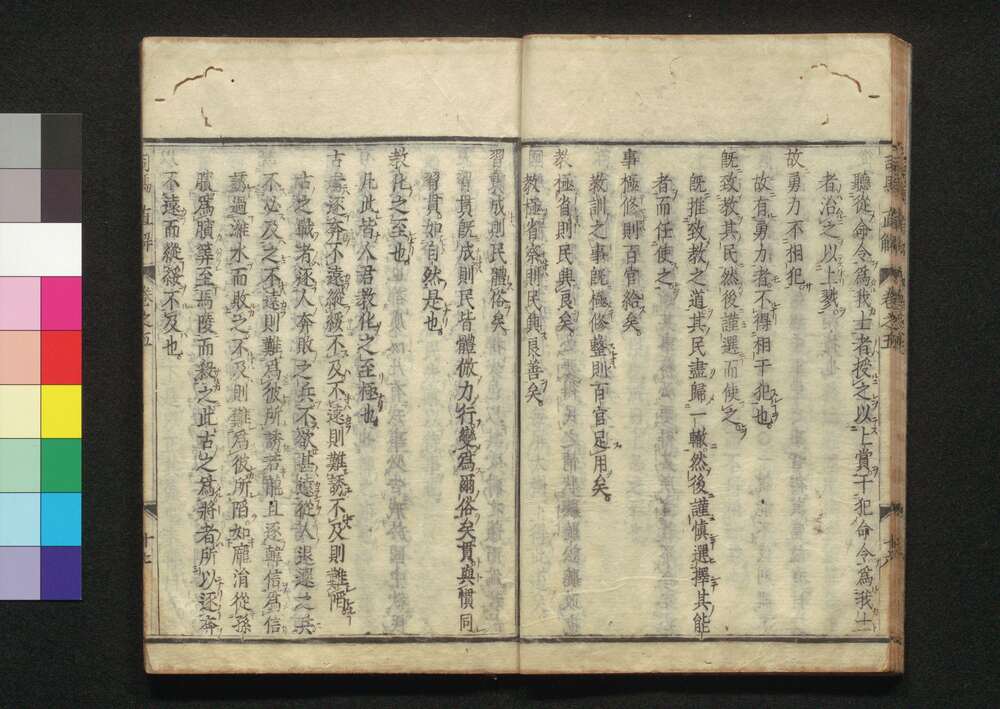 聽從命令爲我士者授之以上賞干犯命令爲我士
者治之以上戮
故勇力不相犯
故有勇力者不得相干犯也
既致教其民然後謹選而使之
既推致教之道其民盡歸一轍然後謹慎選擇其能
者而任使之
事極修則百官給矣
教訓之事既極修整則百官足用矣
教極省則民興良矣
教極省察則民興良善矣
習貫成則民體俗矣
習貫既成則民皆體倣力行變爲爾俗矣貫與慣同
習貫如自然是也
教化之至也
凡此皆人君教化之至極也
古者逐奔不遠縱綏不及不遠則難誘不及則難陷
古之戰者逐人奔敗之兵不欲甚遠從人退還之兵
不必及之不遠則難爲彼所誘若龍且逐韓信爲信
誘過濰水而敗之不及則難爲彼所陷如龐涓從孫
臏爲臏算至馬陵而殺之此古之爲將者所以逐奔
不遠而縱綏不及也
直解
卷之五
十七